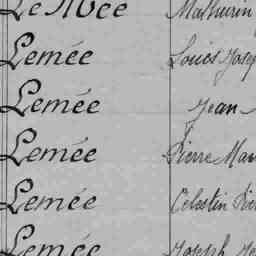 Mathurin
Lemée Louis Josep
Lemée Jean
Lemée Pierre Mar
Lemée Célestin
Lemée Joseph